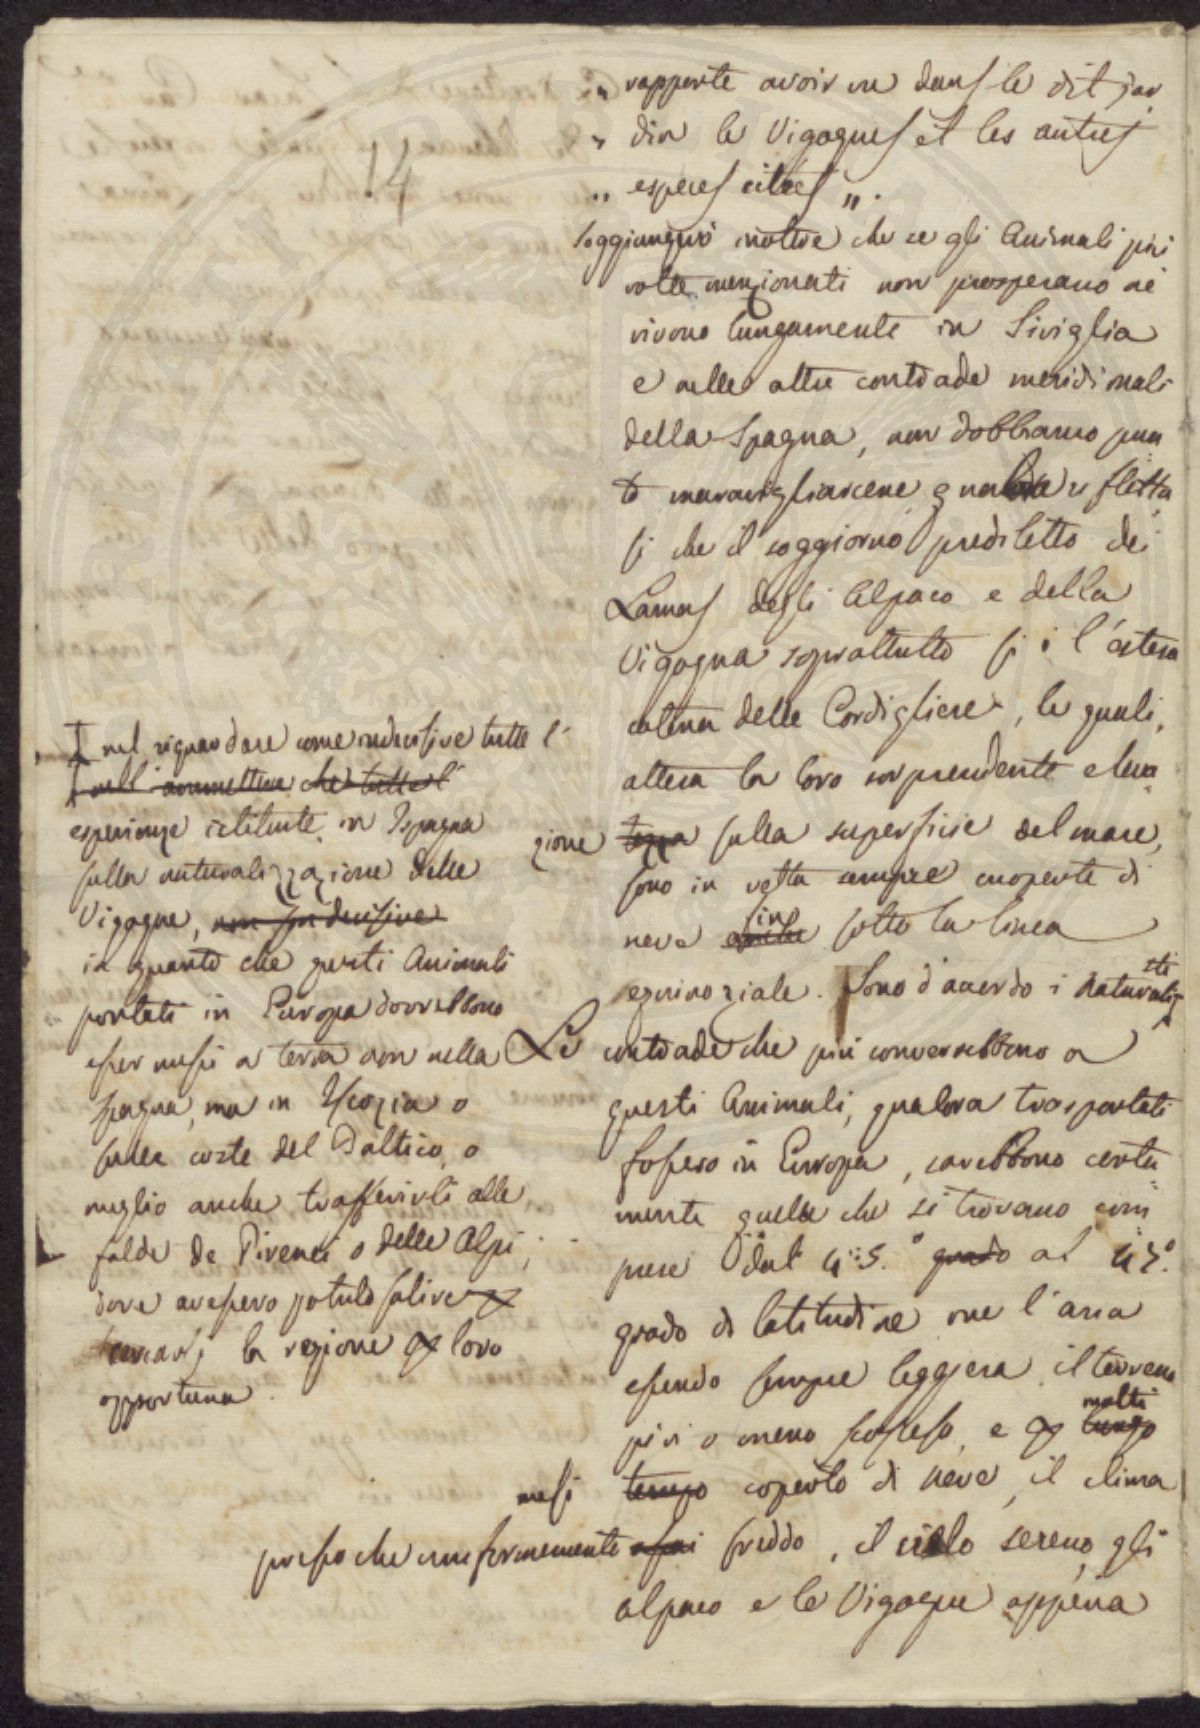 14
„ rapporte avoir vu dans le dit jar
„ din le Vigognes et les autres
„ especes citées „.
soggiungerò inoltre che se gli Animali più
volte menzionati non prosperano nè
vivono lungamente in Siviglia
e nelle altre contrade meridionali
della Spagna, non dobbiamo pun
to maravigliarcene, qualora
si che il soggiorno prediletto dei
Lamas degli Alpaco e della
Vigogna soprattutto si è l'estesa
catena delle Cordigliere, le quali,
attesa la loro sorprendente eleva
zione tezza sulla superficie del mare,
sono in vetta sempre coperte di
neve anche in sotto la linea
equinoziale. Sono d'accordo i Naturalisti
Le contrade che più converrebbono a
questi Animali, qualora trasportati
fossero in Europa, sarebbono certa
mente quelle che si trovano com
prese dal 45.° grado al
grado di latitudine ove l'aria
essendo sempre leggiera il terreno
più o meno scosceso, e molti lungo
mesi tempo coperto di neve, il clima
pressoche uniformemente assai freddo, il cielo sereno, gli
alpaco e le Vigogne appena
nel riguardare come indecisive tutte l'
nell' ammettere che tutte l'
esperienze istituite in Ispagna
sulla naturalizzazione delle
Vigogne, non son decisive
in quanto che questi Animali
portati in Europa dovrebbono
esser messi a terra non nella
Spagna, ma in Iscozia o
sulle coste del Baltico, o
meglio anche trasferirli alle
falde de Pirenei o delle Alpi,
dove avessero potuto salire
la regione loro
opportuna.